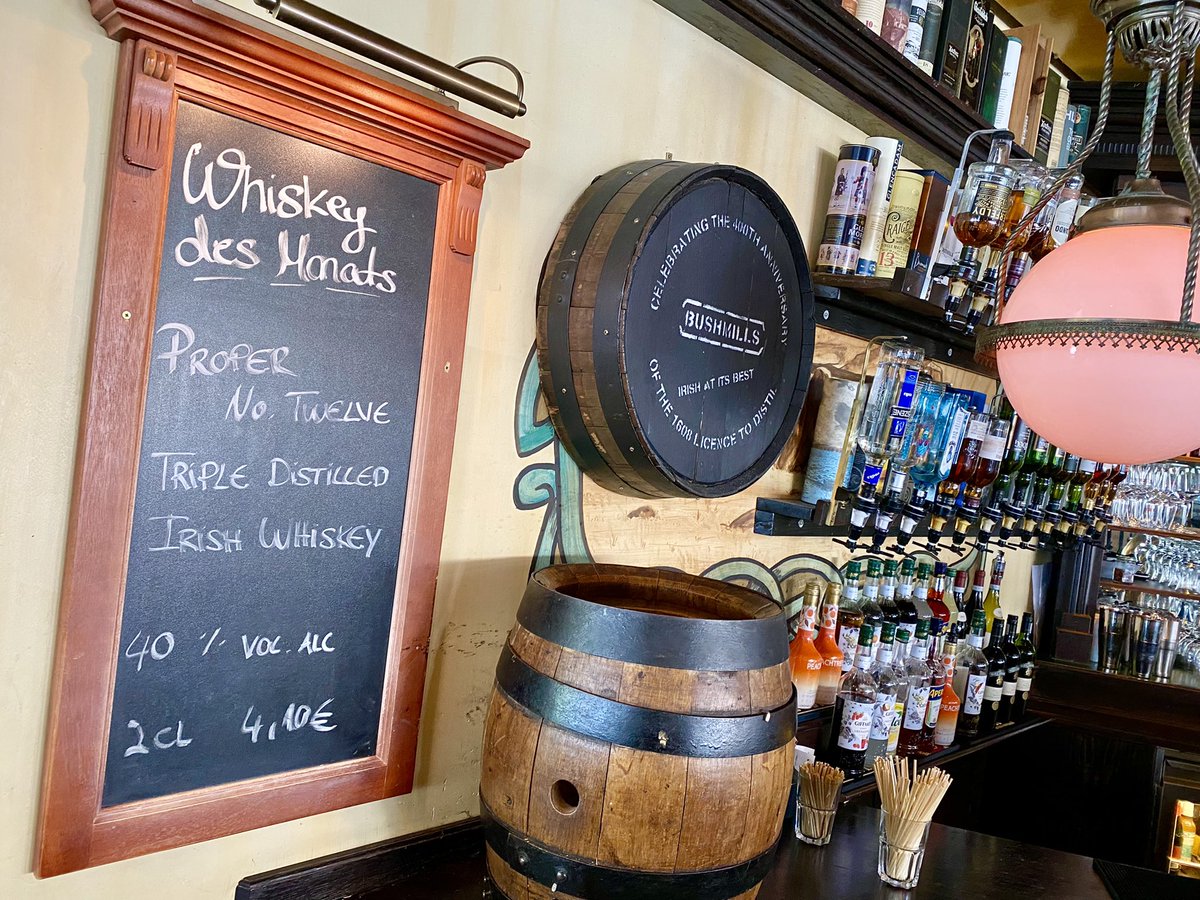 Whiskey
des Monats
PROPER
No. TWELVE
TRIPLE DISTILLED
IRISH WHISKEY
40 % VOL. ALC
2 CL 4,10€
CELEBRATING THE 400TH ANNIVERSARY
BUSHMILLS
IRISH AT ITS BEST
OF THE 1608 LICENCE TO DISTIL
13